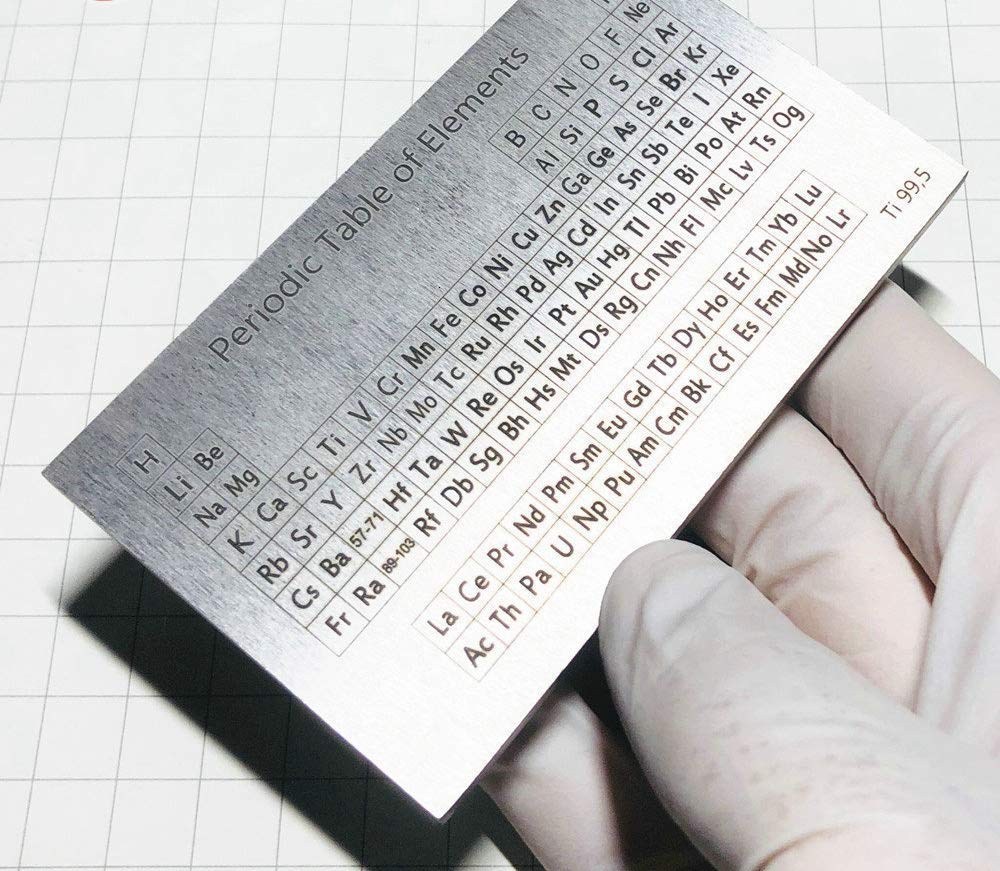 Periodic Table of Elements
H
Li Be B C N O F Ne
Na Mg Al Si P S Cl Ar
K Ca Sc Ti V Cr Mn Fe Co Ni Cu Zn Ga Ge As Se Br Kr
Rb Sr Y Zr Nb Mo Tc Ru Rh Pd Ag Cd In Sn Sb Te I Xe
Cs Ba 57-71 Hf Ta W Re Os Ir Pt Au Hg Tl Pb Bi Po At Rn
Fr Ra 89-103 Rf Db Sg Bh Hs Mt Ds Rg Cn Nh Fl Mc Lv Ts Og
La Ce Pr Nd Pm Sm Eu Gd Tb Dy Ho Er Tm Yb Lu
Ac Th Pa U Np Pu Am Cm Bk Cf Es Fm Md No Lr
Ti 99,5